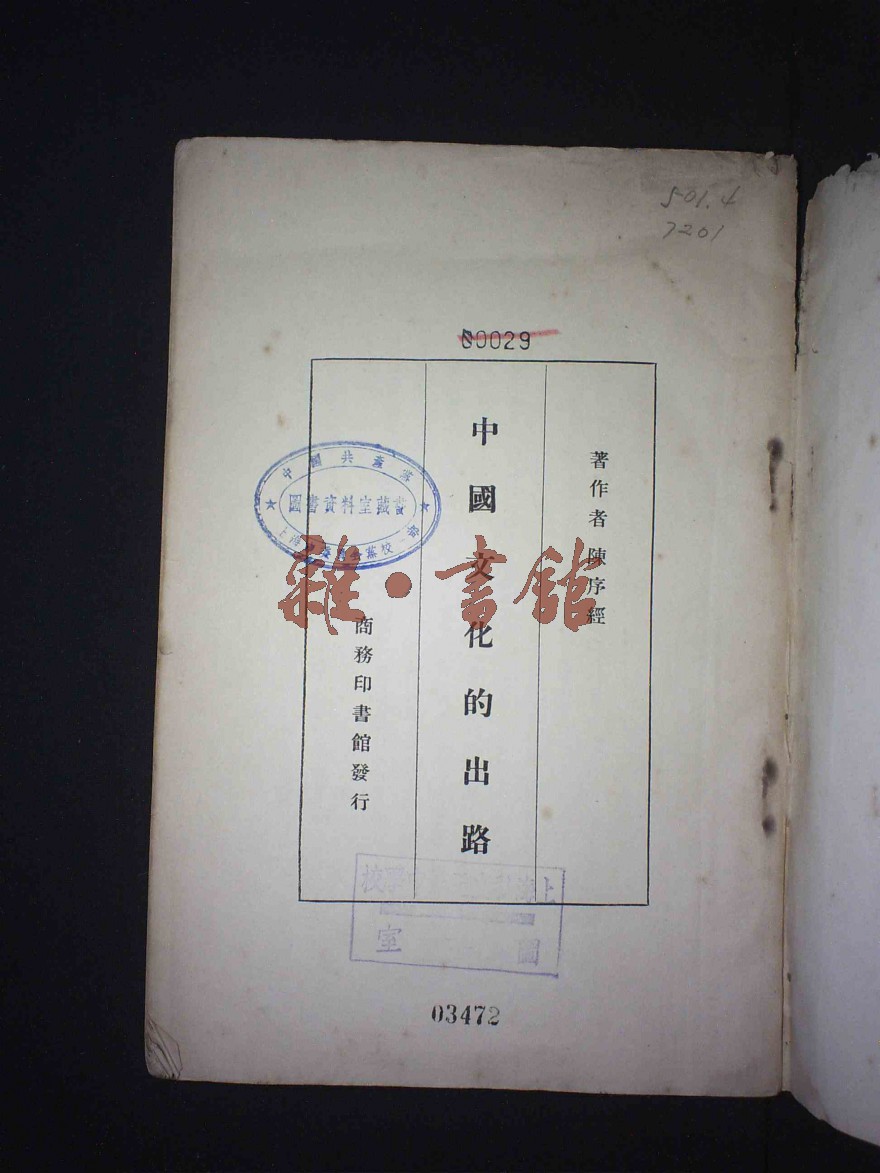 501.4
7201
00029
著作者 陳序經
中國文化的出路
商務印書館發行
中國共產黨
圖書資料室藏書
雜·書館
上海
學校
圖
室
03472